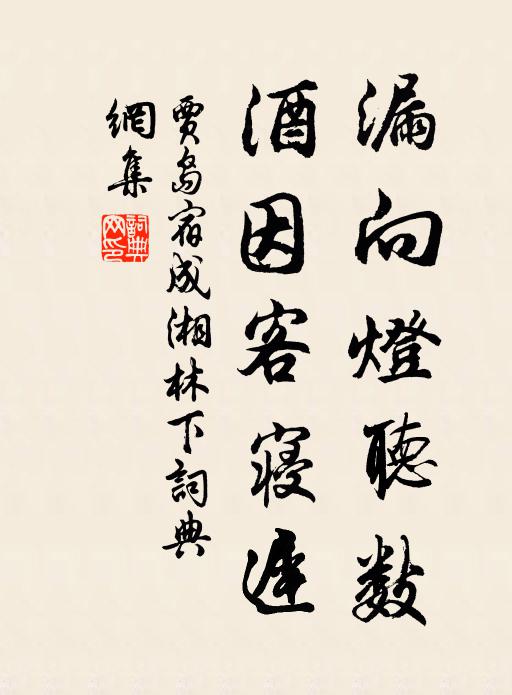 漏向燈聽數
酒因客寢遲
賈島宿成湘林下詞典
網集
詞典
网印